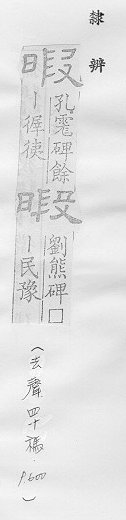 隸辨
暇
孔彪碑餘
丨
暇
劉熊碑□
丨民豫
(去聲四十禡. P.600)